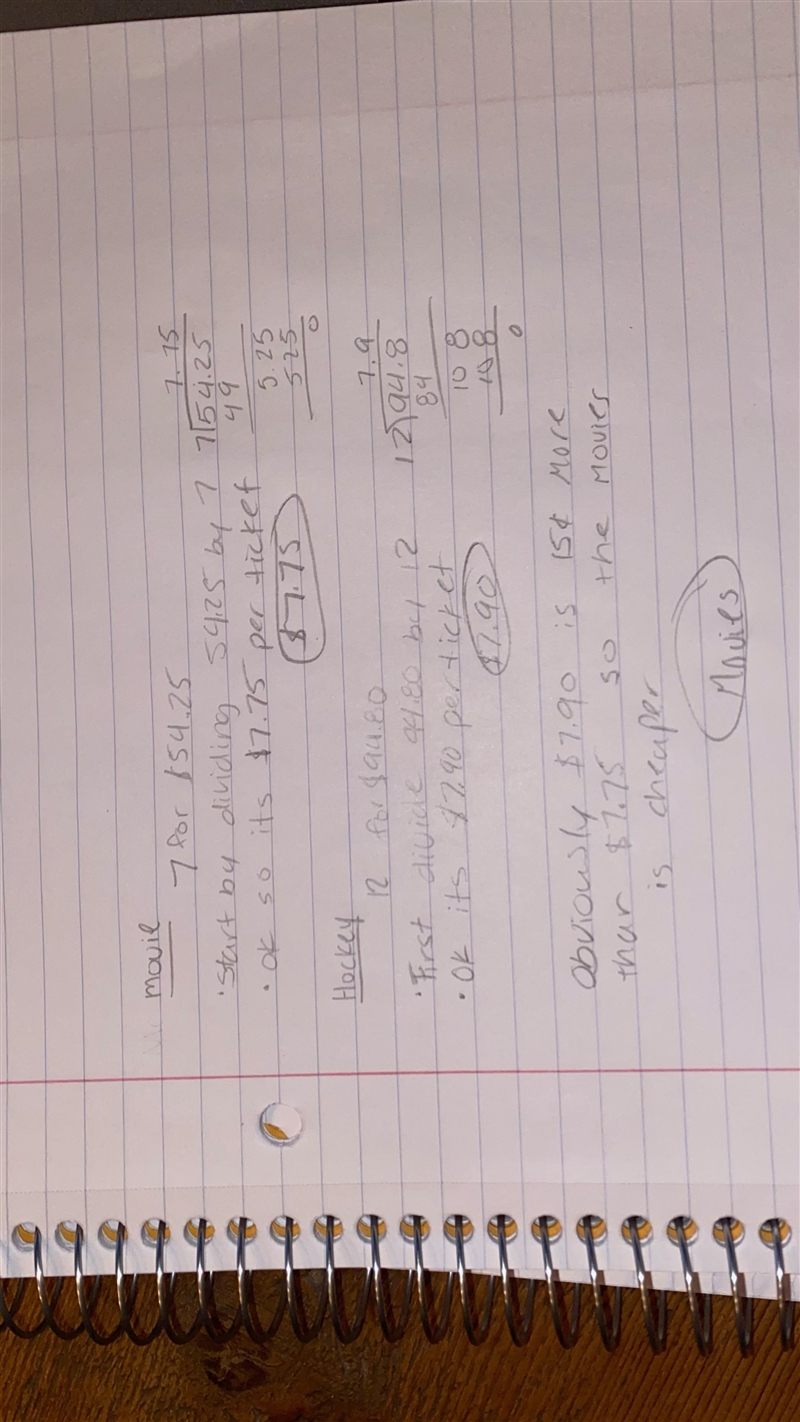 Movie
7 for $54.25
• Start by dividing 54.25 by 7
• OK so its $7.75 per ticket
$7.75
7.75
7)54.25
49
5.25
525
0
Hockey
12 for $94.80
• First divide 94.80 by 12
• OK its $7.90 per ticket
$7.90
7.9
12)94.8
84
10 8
10 8
0
Obviously $7.90 is 15¢ More
than $7.75 so the Movies
is cheaper
Movies